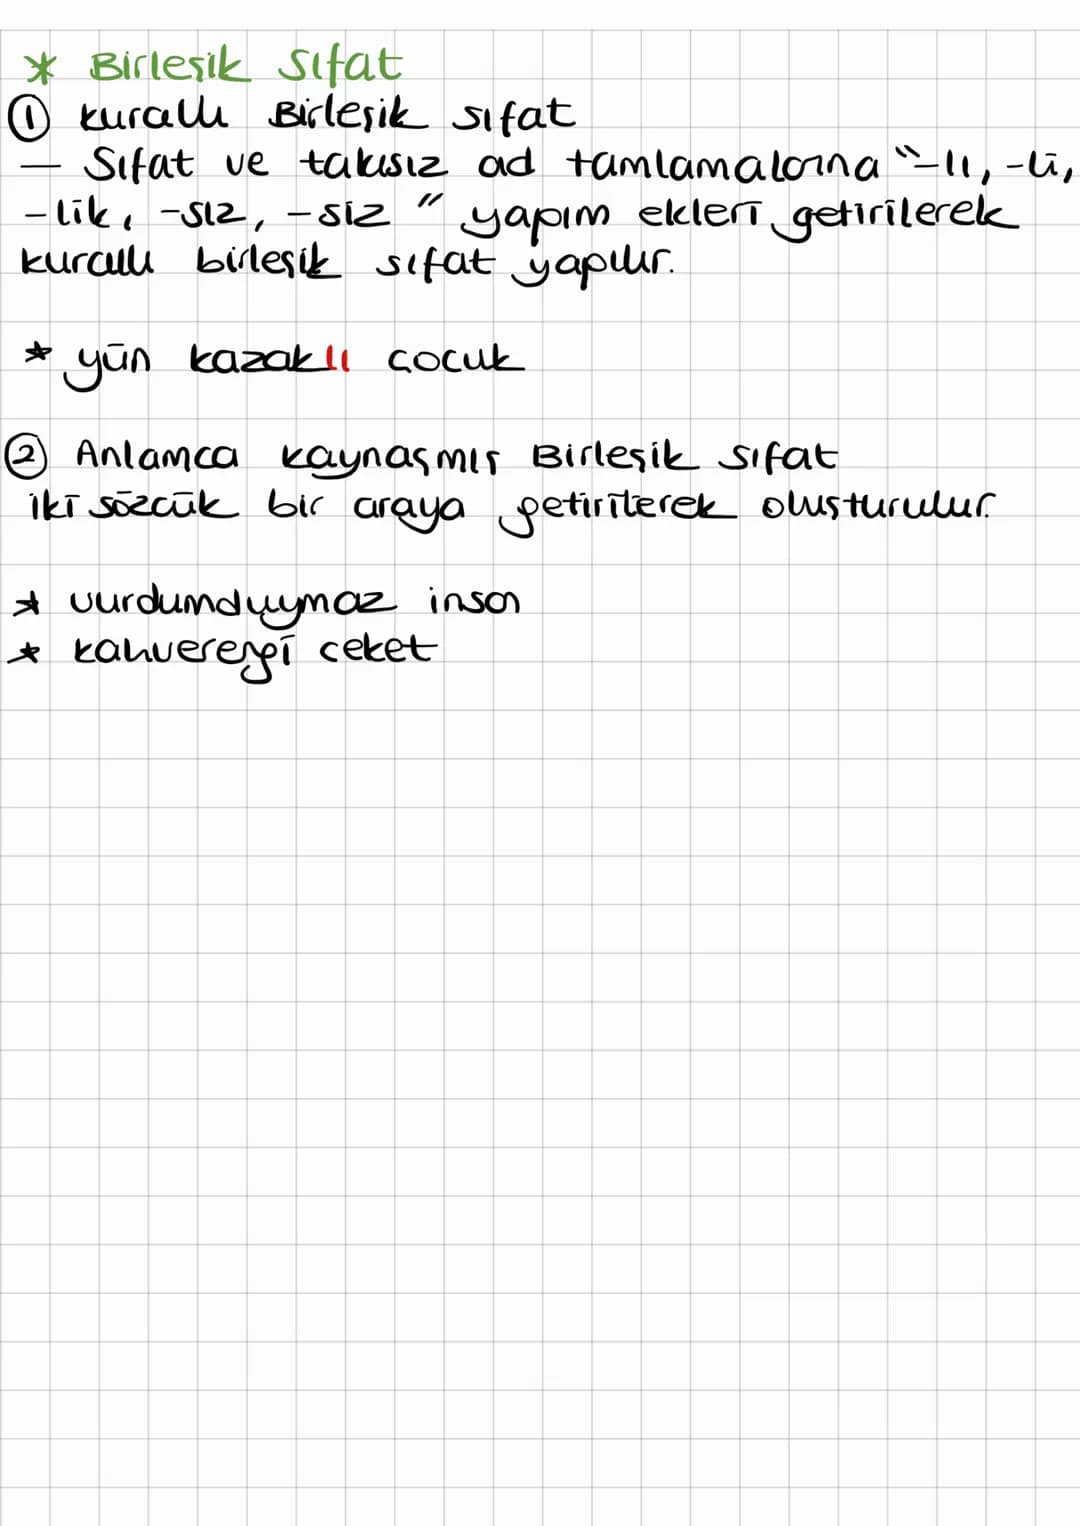 * Birleşik Sıfat
① kurallı Birleşik sıfat
— Sıfat ve takısız ad tamlamalarına "-lı, -li,
-lik, -sız, -siz" yapım ekleri getirilerek
kurallı birleşik sıfat yapılır.
* yün kazaklı çocuk
② Anlamca kaynaşmış Birleşik sıfat
iki sözcük bir araya getirilerek oluşturulur.
* vurdumduymaz insan
* kahverengi ceket